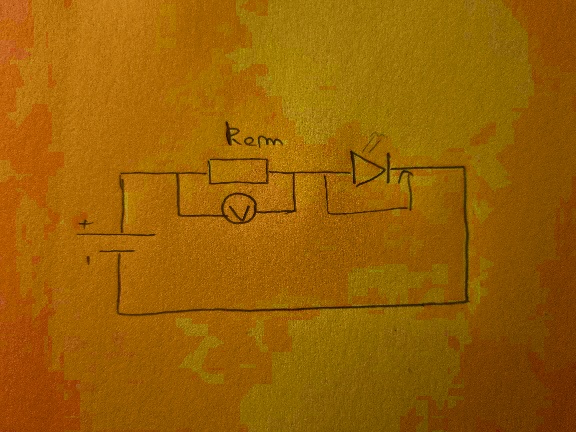 Rem
V
+
-